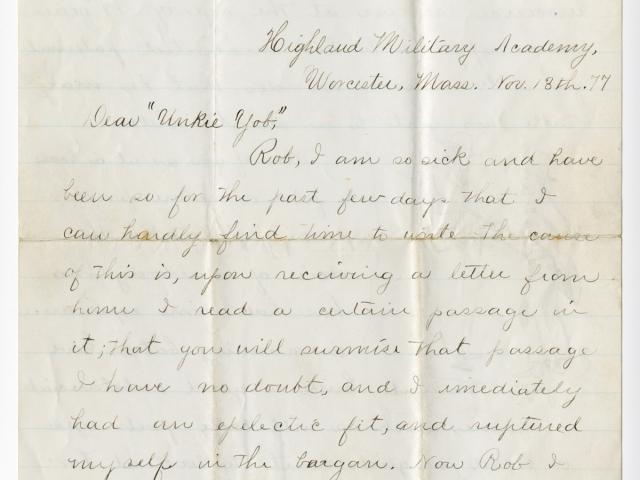 Highland Military Academy,
Worcester, Mass. Nov. 18th. 77
Dear "Unkie Yob,"
Rob, I am so sick and have
been so for the past few days that I
can hardly find time to write the cause
of this is, upon receiving a letter from
home I read a certain passage in
it; that you will surmise that passage
I have no doubt, and I imediately
had an epelectic fit, and ruptured
myself in the bargan. Now Rob I